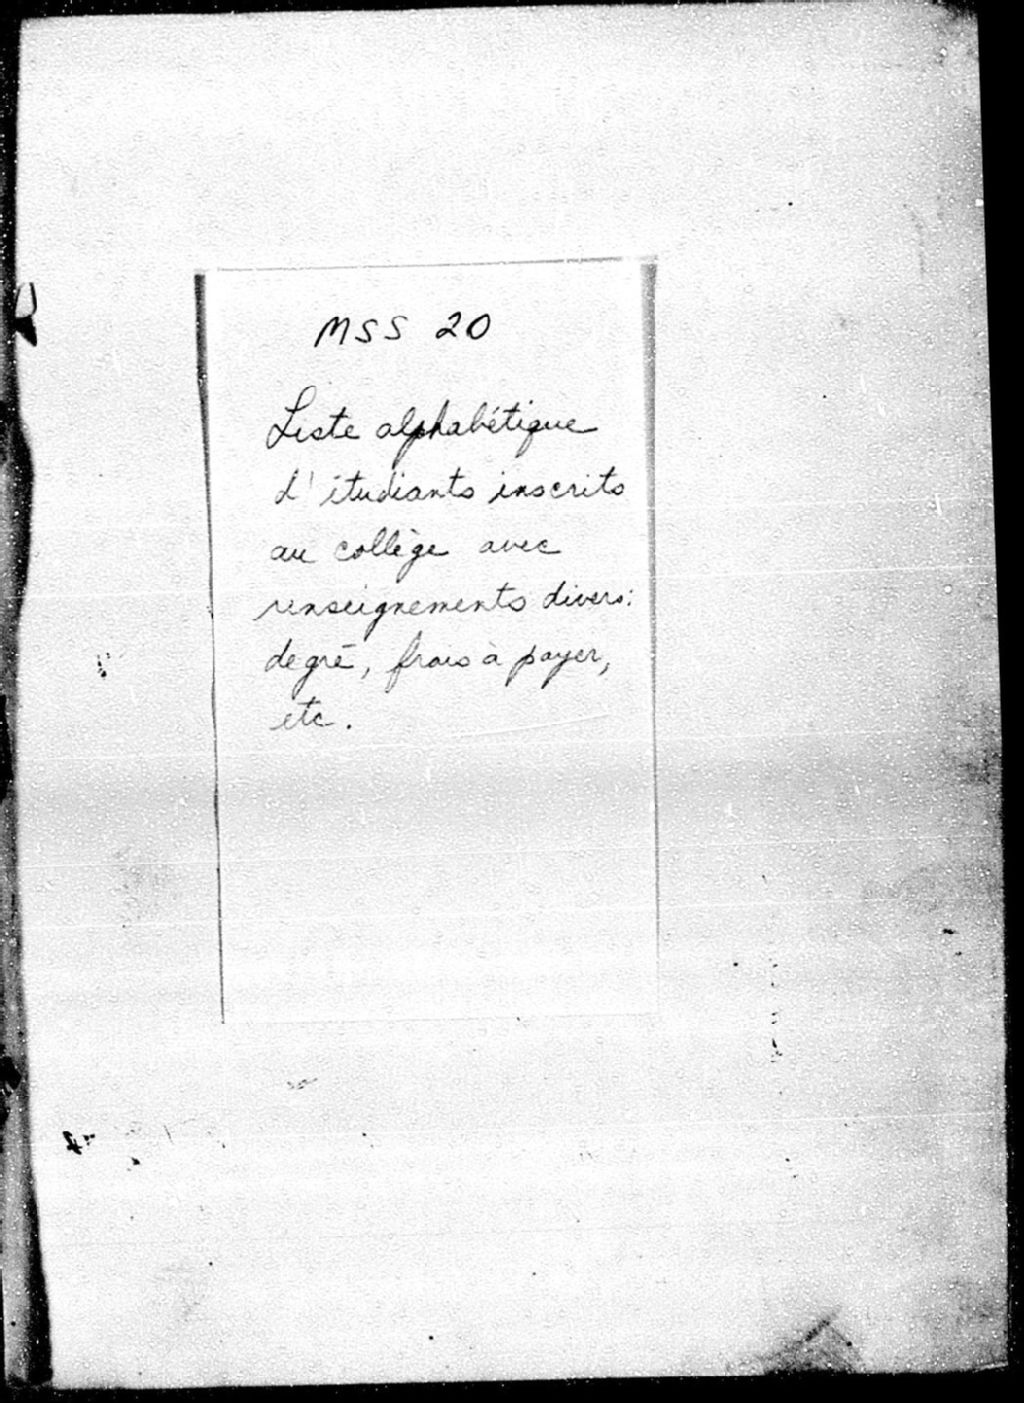 MSS 20
Liste alphabétique
d'étudiants inscrits
au collège avec
renseignements divers:
degré, frais à payer,
etc.